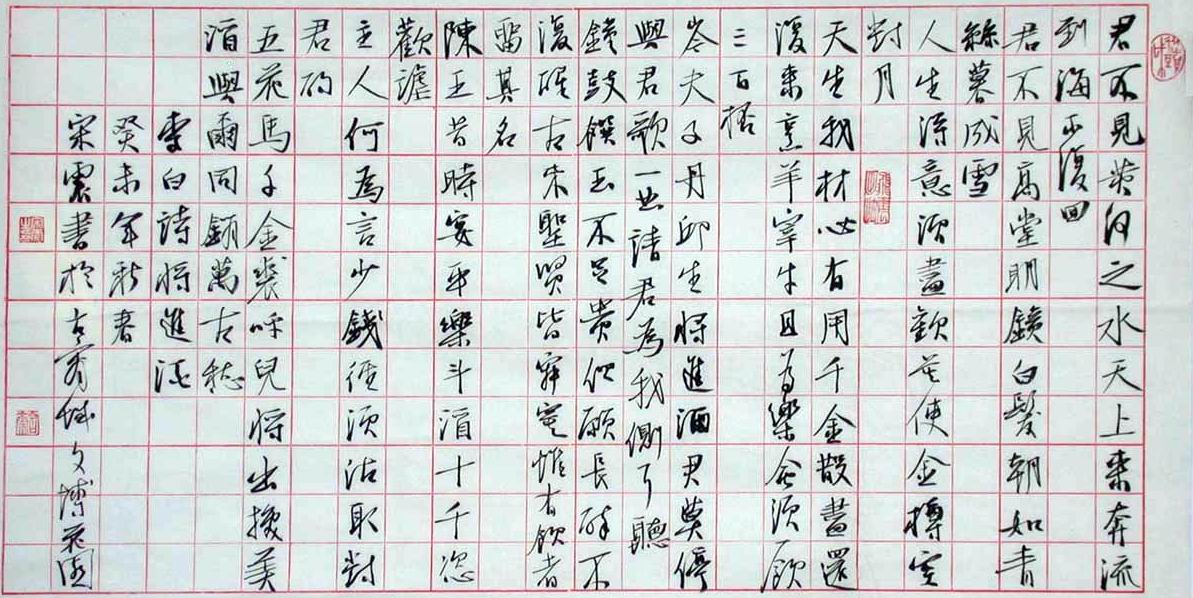 君不見黃河之水天上來奔流
到海不復回
君不見高堂明鏡白髮朝如青
絲暮成雪
人生得意須盡歡莫使金樽空
對月
天生我材必有用千金散盡還
復來烹羊宰牛且為樂會須飲
三百杯
岑夫子丹邱生將進酒君莫停
與君歌一曲請君為我側耳聽
鐘鼓饌玉不足貴但願長醉不
復醒古來聖賢皆寂寞惟有飲者
留其名
陳王昔時宴平樂斗酒十千恣
歡謔
主人何為言少錢徑須沽取對
君酌
五花馬千金裘呼兒將出換美
酒與爾同銷萬古愁
李白詩將進酒
癸未年新春
宋震書於古宵城文博花園